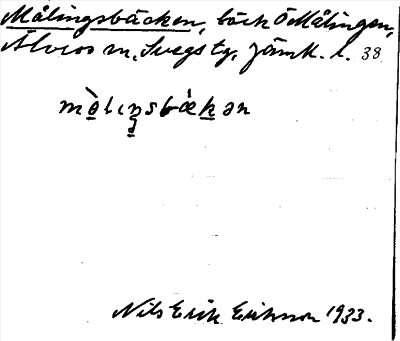 Målingsbäcken, bäck Ö Målingen,
Älvros sn, Svegs tg, Jämtl. l. 38
mὰlıŋsbɛ́kən
Nils Erik Eriksson 1933.